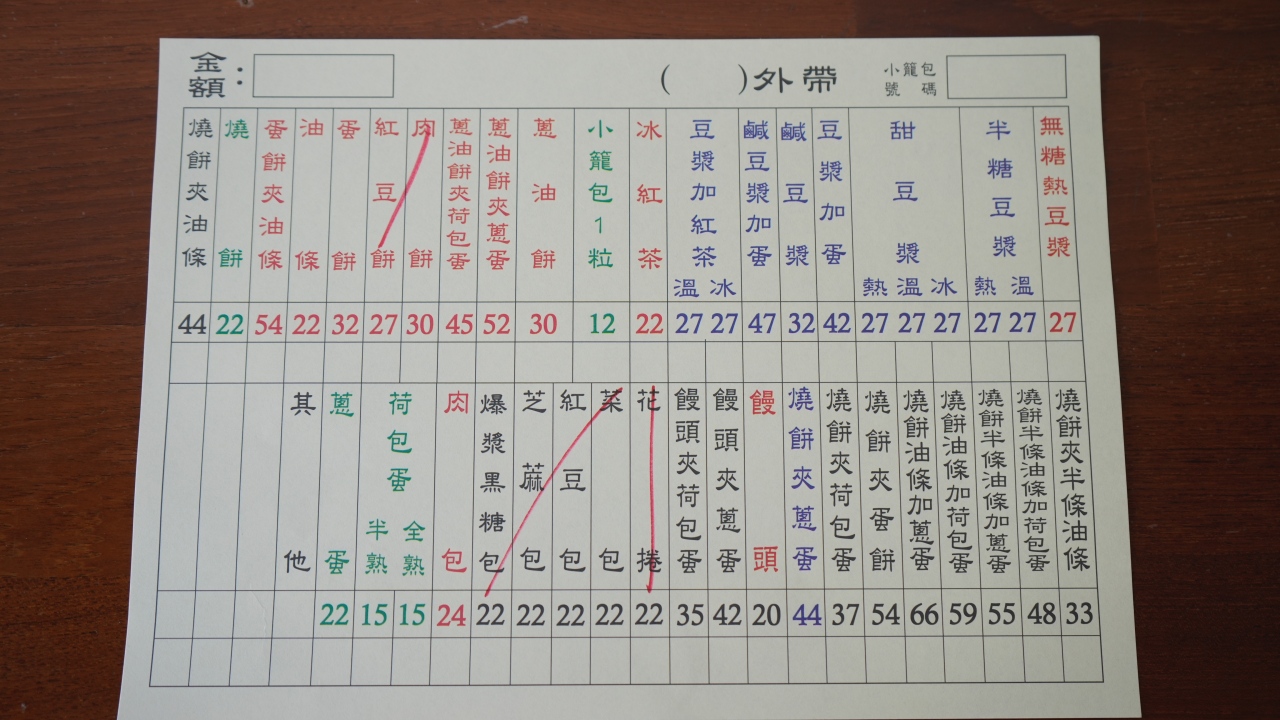 金額： （　　）外帶 小籠包號碼
無糖熱豆漿 27
半糖豆漿 溫 27 熱 27
甜豆漿 冰 27 溫 27 熱 27
豆漿加蛋 42
鹹豆漿 32
鹹豆漿加蛋 47
豆漿加紅茶 冰 27 溫 27
冰紅茶 22
小籠包1粒 12
蔥油餅 30
蔥油餅夾蔥蛋 52
蔥油餅夾荷包蛋 45
肉餅 30
紅豆餅 27
蛋餅 32
油條 22
蛋餅夾油條 54
燒餅 22
燒餅夾油條 44
燒餅夾半條油條 33
燒餅半條油條加荷包蛋 48
燒餅半條油條加蔥蛋 55
燒餅油條加荷包蛋 59
燒餅油條加蔥蛋 66
燒餅夾蛋餅 54
燒餅夾荷包蛋 37
燒餅夾蔥蛋 44
饅頭 20
饅頭夾蔥蛋 42
饅頭夾荷包蛋 35
花捲 22
菜包 22
紅豆包 22
芝麻包 22
爆漿黑糖包 22
肉包 24
荷包蛋 全熟 15 半熟 15
蔥蛋 22
其他